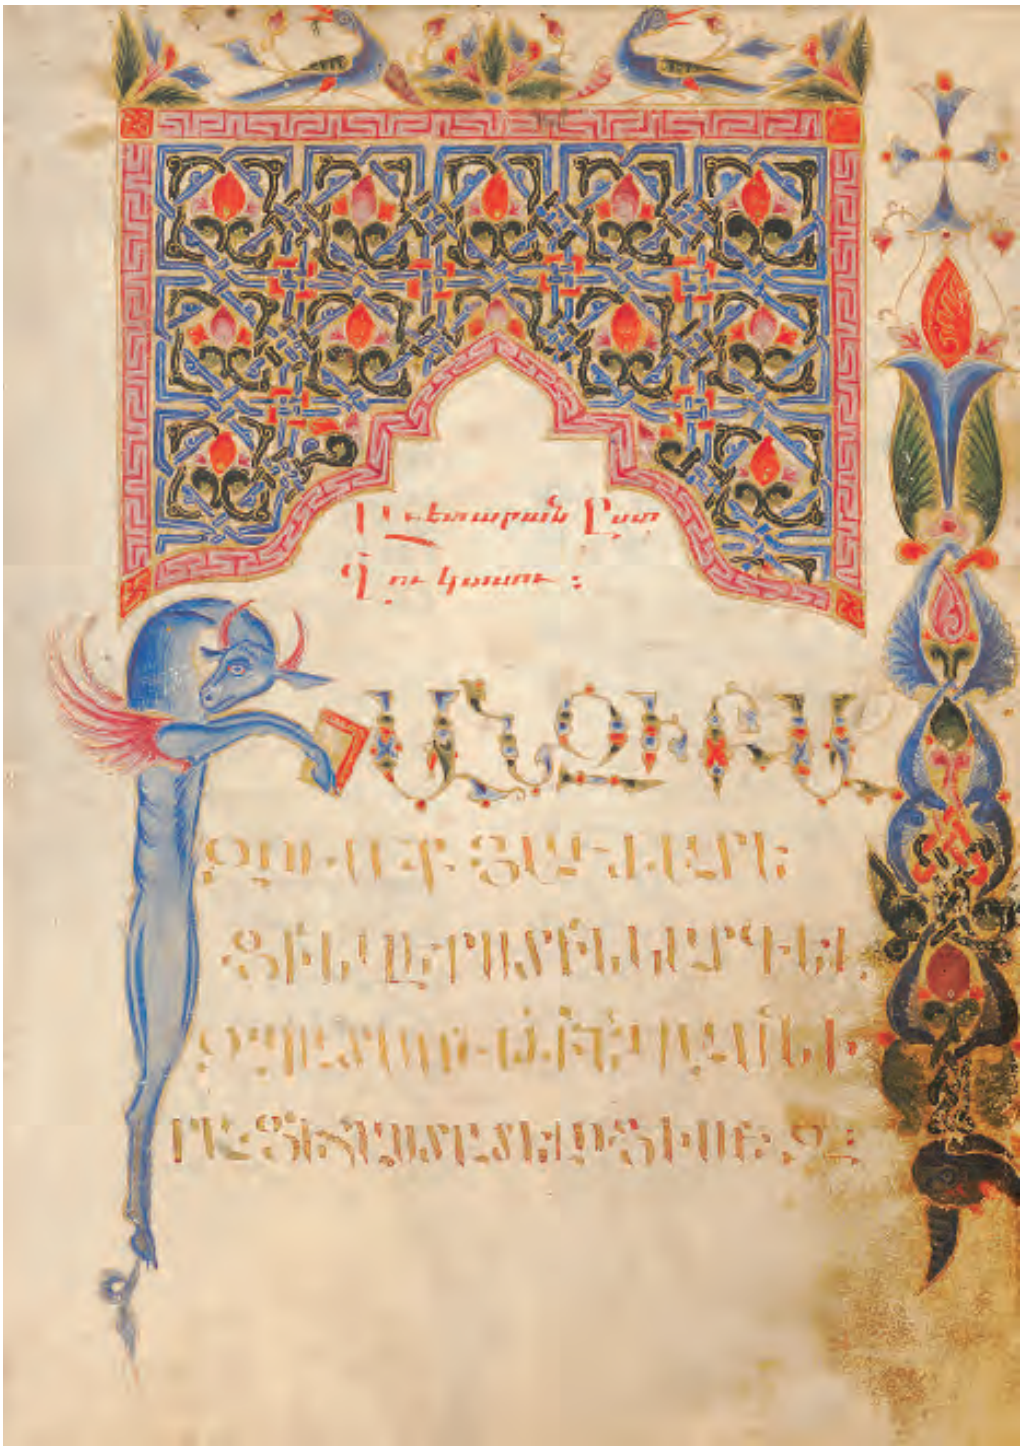 Աւետարան Ըստ
Ղուկասու :
ՔԱՆԶԻ ԲԱ
ԶՈՒՄՔ ՅԱՒԺԱՐԵ
ՑԻՆ ՎԵՐՍՏԻՆ ԿԱՐԳԵԼ
ԶՊԱՏՄՈՒԹԻՒՆ ՎԱՍՆ Ի
ՐԱՑՆ ՀԱՍՏԱՏԵԼՈՑ Ի ՄԵԶ :